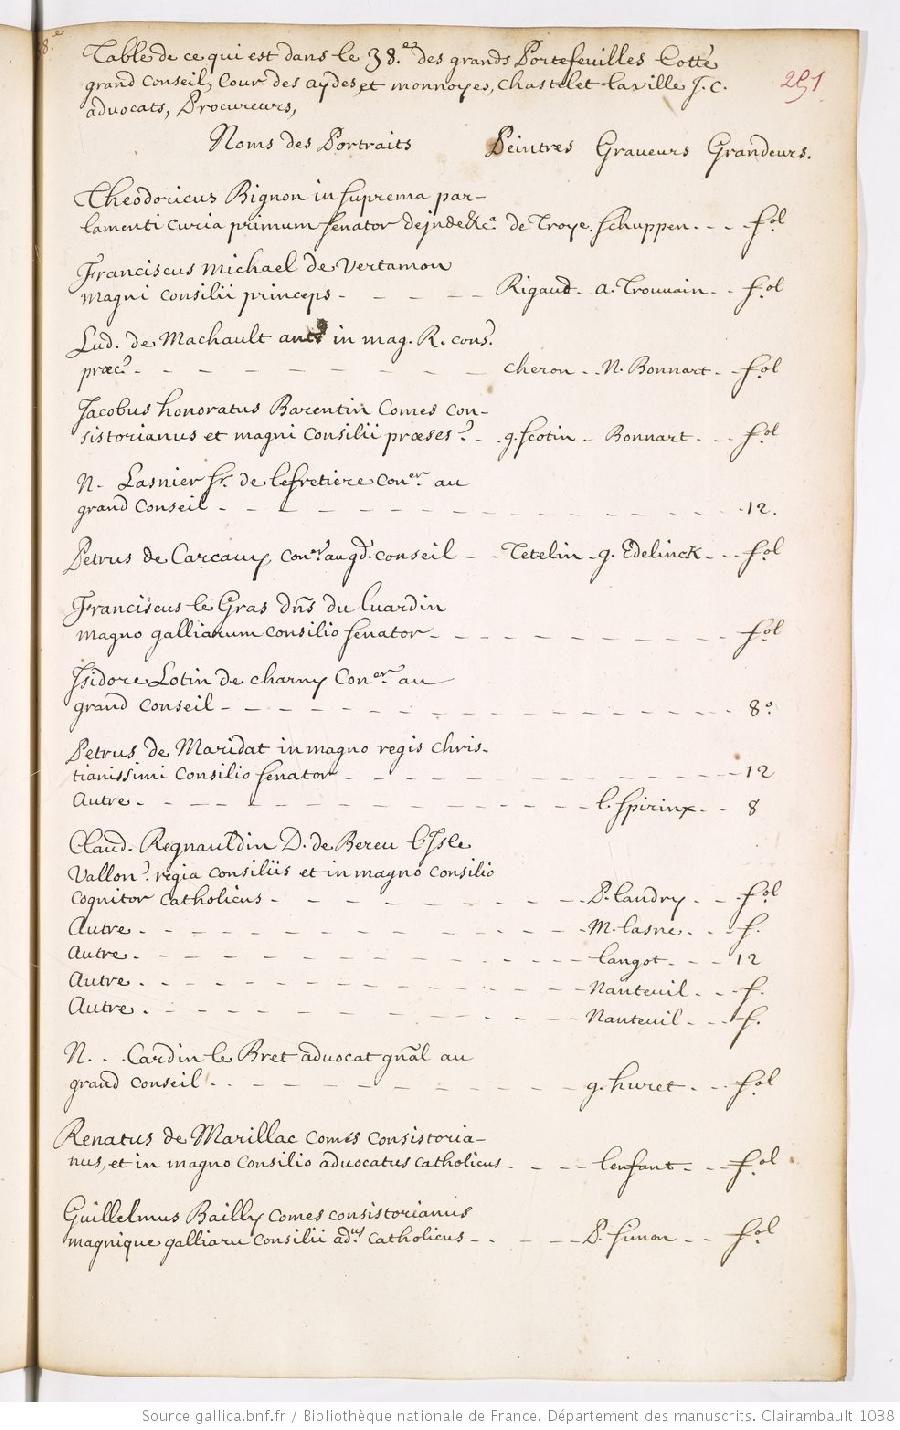 Table de ce qui est dans le 38.e des grands Portefeuilles Cotté
grand Conseil, Cour des aydes, et monnoyes, Chastelet la ville J. C.
advocats, Procureurs,
251
Noms des Portraits Peintres Graveurs Grandeurs.
Theodoricus Bignon in suprema par-
lamenti Curia primum senator de Troye Schuppen. - - fol
Franciscus michael de Vertamon
magni Consilii princeps - - - - - Rigaud - a. Trouvain - - fol
Lud. de Machault in mag. R. cons.
præs. - - - - - - - - Cheron - - N. Bonnart - - fol
Jacobus honoratus Barentin Comes Con-
sistorianus et magni Consilii præses. - g. scotin - Bonnart - - fol
N. Lasnier sr. de Lefretiere Con.er au
grand Conseil - - - - - - - - - - - - 12.
Petrus de Carcauy, Con.er au gd. Conseil - Tetelin - g. Edelinck - - fol
Franciscus le Gras dñs du Luardin
magno galliarum Consilio senator - - - - - - - - fol
Isidore Lotin de charny Con.er au
grand Conseil - - - - - - - - - - - - 8o
Petrus de Maridat in magno regis chris-
tianissimi Consilio senator - - - - - - - - - 12
Autre - - - - - - - - - - - L. Spirinx - - 8
Claud. Regnauldin D. de Bereu L'Isle
Vallon. regia consiliis et in magno Consilio
Cognitor Catholicus - - - - - - - P. Landry - - fol
Autre - - - - - - - - - - - M. Lasne - - f.
Autre - - - - - - - - - - - Langot - - - 12
Autre - - - - - - - - - - - Nanteuil - - f.
Autre - - - - - - - - - - - Nanteuil - - f.
N. . . Cardin le Bret advocat gñal au
grand Conseil - - - - - - - - - g. huret - - fol
Renatus de Marillac Comes Consistoria-
nus, et in magno Consilio advocatus Catholicus - - - Lenfant - - fol
Guillelmus Bailly Comes consistorianus
magnique galliaru Consilii ad.us Catholicus - - - - P. Simon - - fol
Source gallica.bnf.fr / Bibliothèque nationale de France. Département des manuscrits. Clairambault 1038